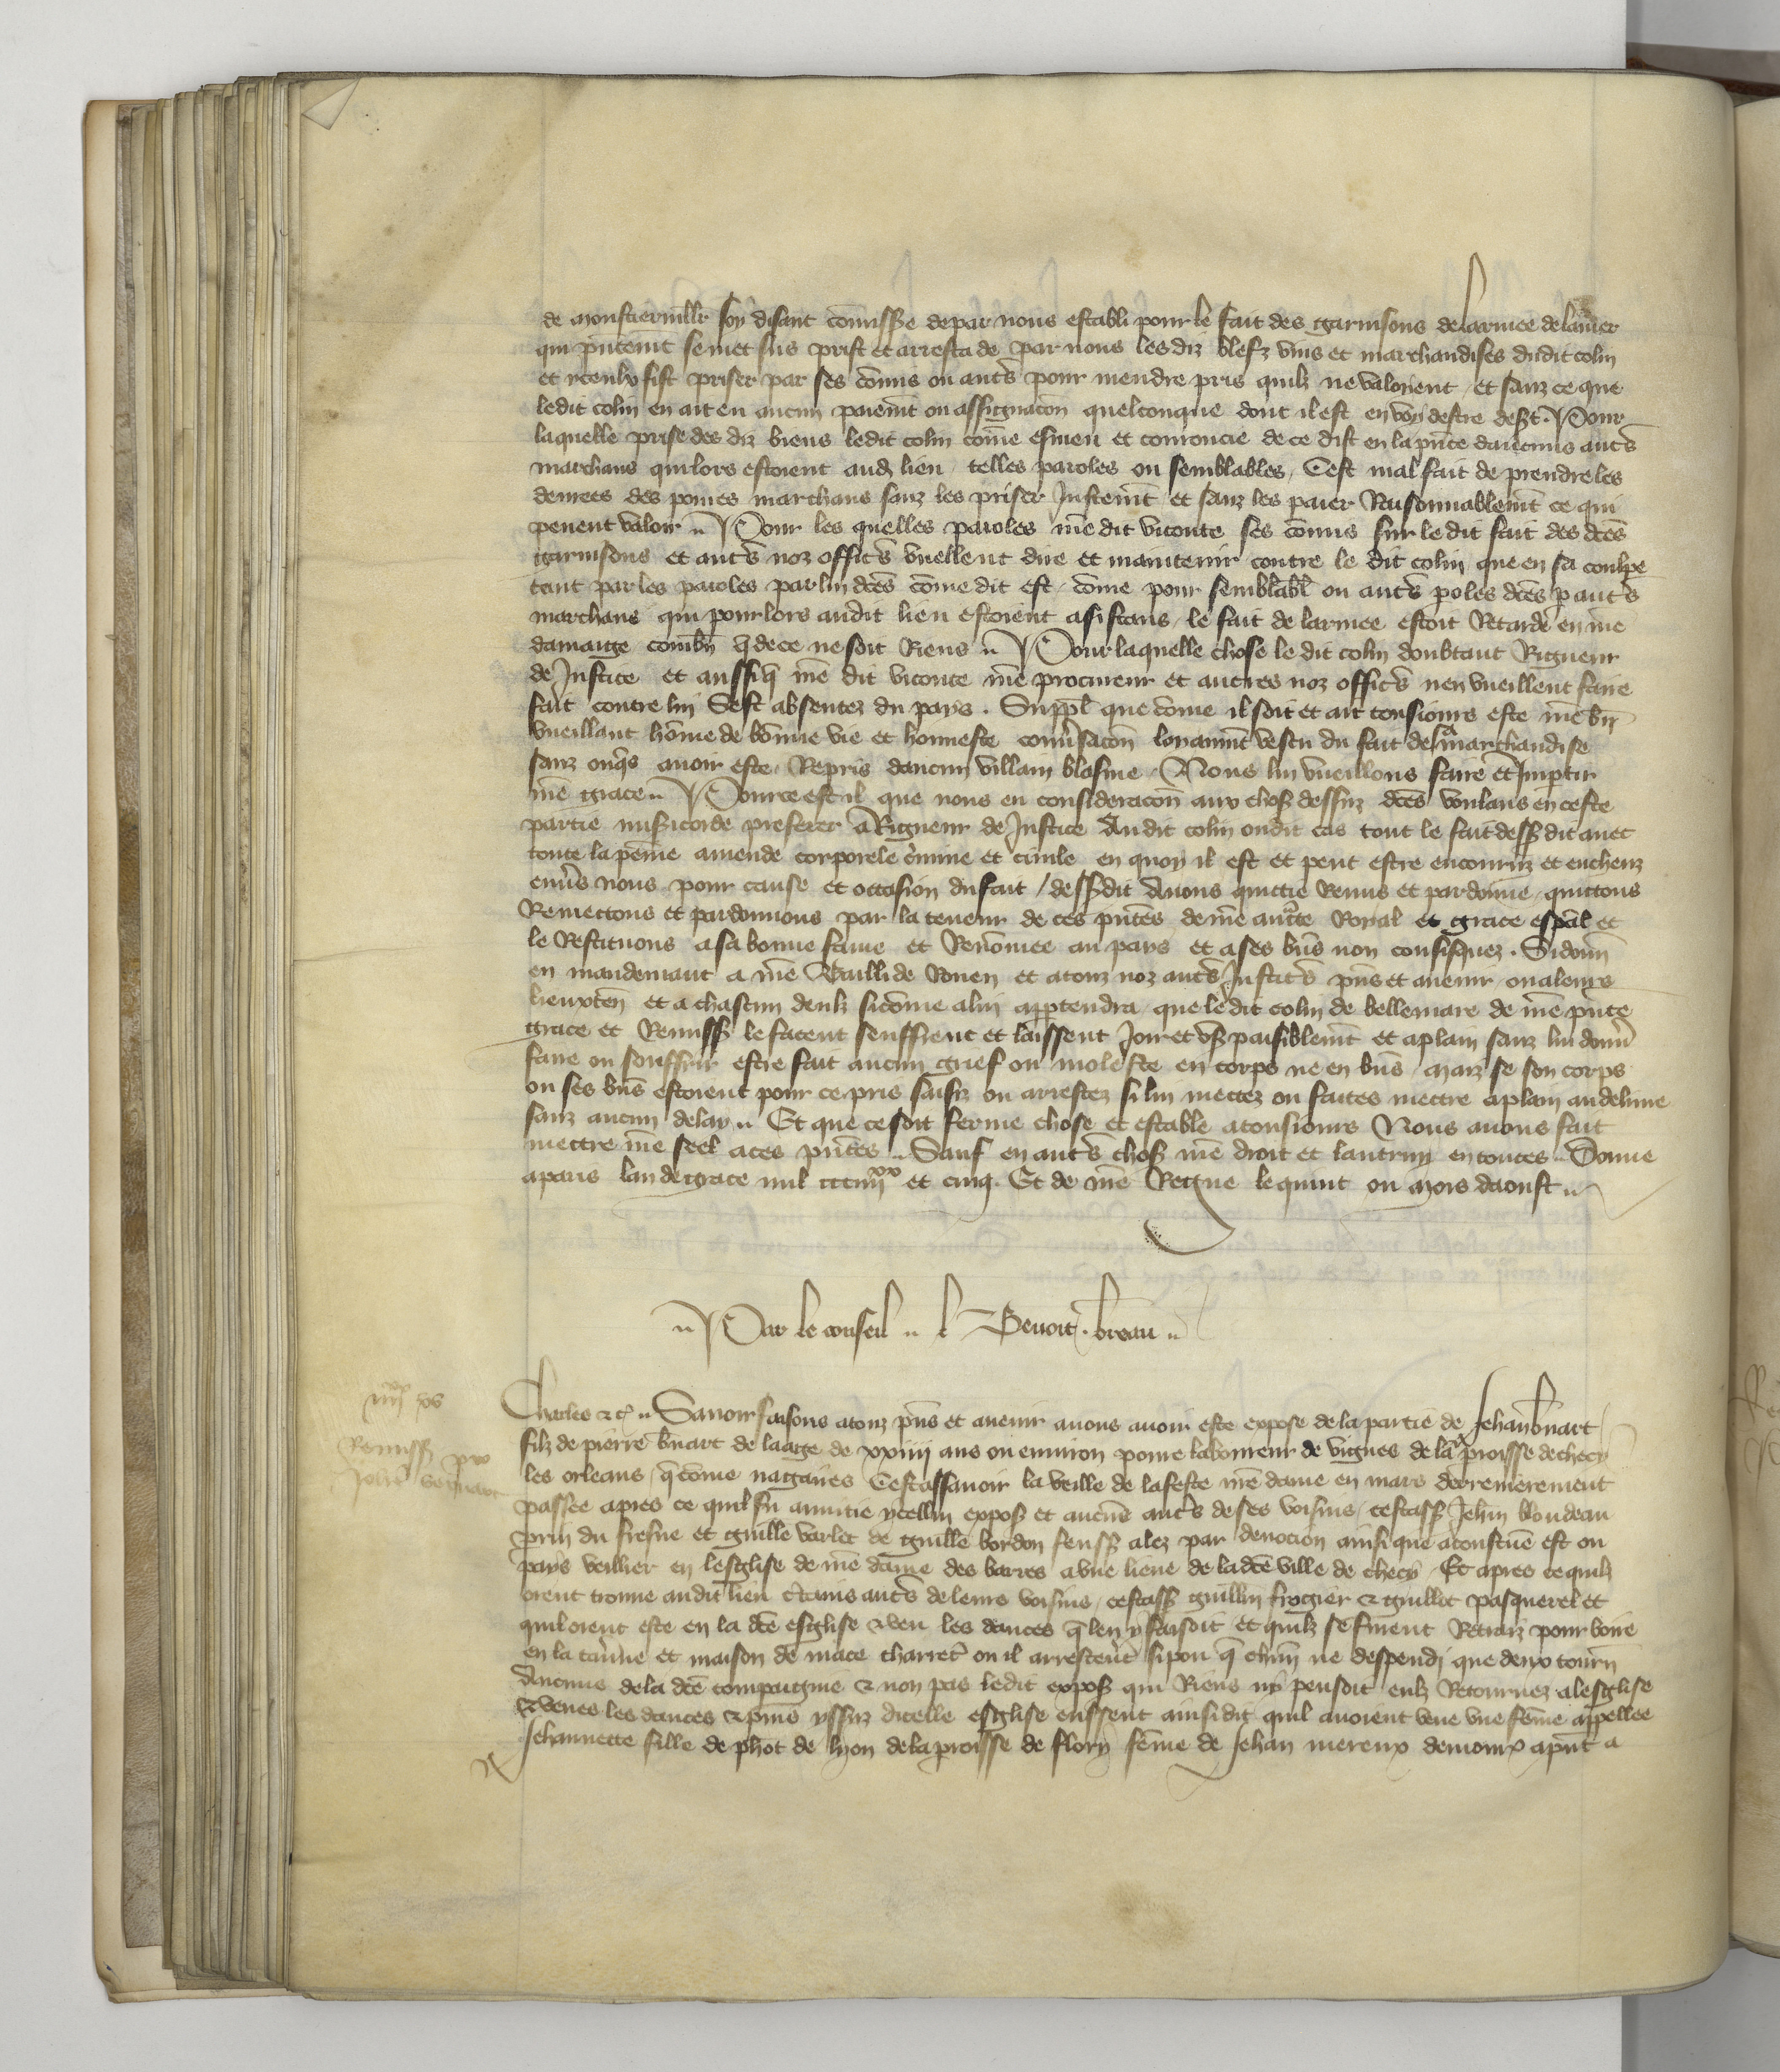 de monstiervillr soy disant cōmissre de par nous establi pour le fait des garnisons de larmee de la mer
qui pntemt se met sus prist et arresta de par nous les diz blefz vins et marchandises dudit colin
et yceulx fist priser par ses cōmis ou autrs pour mendre pris quilz ne valoient et sanz ce que
ledit colin en ait eu aucun paiemt ou assignacōn quelconque dont il est en voy destre desrt. Pour
laquelle prise des diz biens ledit colin cōme esmeu et courroucie de ce dist en la pnce daucuns autrs
marchans qui lors estoient aud lieu telles paroles ou semblables, Cest mal fait de prendre les
denrees des poures marchans sanz les priser Justemt et sanz les paier Raisonnablemt ce qui
peuent valoir .. Pour les quelles paroles nre dit viconte ses cōmis sur le dit fait des dces
garnisons et autrs noz officrs vuellent dire et maintenir contre le dit colin que en sa coulpe
tant par les paroles par lui dces cōme dit est, cōme pour semblabl ou autrs poles dces p autrs
marchans qui pour lors audit lieu estoient assistans, le fait de larmee estoit Retarde en nre
damaige combn q de ce ne soit Riens .. Pour laquelle chose le dit colin doubtant Rigueur
de Justice et aussi q nre dit viconte nre procureur et autres noz officrs nen vueillent faire
fait contre lui Sest absentez du pays. Suppl que cōme il soit et ait tousiours este nre bn
vueillant hōme de bōnne vie et honneste conusacōn loyaumt vescu du fait de la marchandise
sanz onqs auoir este Repris daucun villain blasme, Nous lui vueillons faire et Impartir
nre grace .. Pource est il que nous en consideracōn aux chosz dessuz dces voulans en ceste
partie misicorde preferer a Rigueur de Justice Au dit colin ou dit cas tout le fait dessz dit auec
toute la peine amende corporele crimine et ciuile en quoy il est et peut estre encouruz et encheuz
enurs nous pour cause et occasion du fait dessz dit Auons quictie Remis et pardonne, quictons
Remectons et pardonnons par la teneur de ces pntes de nre aucte Royal et grace espal et
le Restituons a sa bonne fame et Renōmee au pays et a ses bns non confisquez. Si donn
en mandemant a nre Bailli de Rouen et a touz noz autrs Justicrs pns et auenir ou a leurs
lieuxten et a chascun deulx si cōme a lui appartendra que le dit colin de bellemare de nre pnte
grace et Remissz le facent seuffrent et laissent Joir et vsr paisiblemt et a plain sanz lui donnr
faire ou souffrir estre fait aucun grief ou moleste en corps ne en bns, maiz se son corps
ou ses bns estoient pour ce pris saisiz ou arrestez si lui mectez ou faites mectre a plain au deliure
sanz aucun delay .. Et que ce soit ferme chose et estable a tousiours Nous auons fait
mectre nre seel a ces pntes .. Sauf en autrs chosz nre droit et lautruy en toutes .. Donne
a paris lan de grace mil ccciiijxx et cinq. Et de nre Regne le quint ou mois daoust ..
.. Par le conseil .. l Benoit . breau ..
iiijxx xv
Charles &c .. Sauoir faisons a touz pns et auenir nous auoir este expose de la partie de Jehan bnart
Remissz pro
Johe bernart
filz de pierre bnart de laage de xxiiij ans ou enuiron poure laboureur de vignes de la proisse de checy
les orleans, q cōme nagaires Cestassauoir la veille de la feste nre dame en mars derrenierement
passee apres ce quil fu annutie ycellui exposz et aucuns autrs de ses voisins, cestassz Jehin blondeau
prin du fresne et guille varlet de guille bordon feussz alez par deuocion ainsi que acoustume est ou
pays veillier en lesglise de nre dame des barres a vne lieue de la dce ville de checy, Et apres ce quilz
orent trouue audit lieu ctains autrs de leurs voisins, cestassz guillin frogier & guillot pasquerel et
quil orent este en la dce esglise & veu les dances q len y faisoit et quilz se furent Retraiz pour boire
en la tauerne et maison de mace charretr ou il arresterent si pou q chun ne despendi que deux tourn
Aucuns de la dce compaignie & non pas ledit exposz qui Riens ny pensoit eulz Retournez a lesglise
& veues les dances & puis yssuz dicelle esglise eussent ainsi dit quil auoient veue vne feme appellee
Jehannette fille de phot de lyon de la proisse de flory feme de Jehan mereux demourt a pnt a